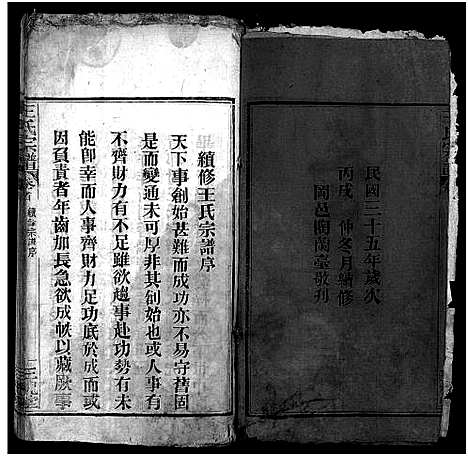 民國三十五年歲次
丙戌　仲冬月續修
岡邑陶蘭臺敬刊
續修王氏宗譜序
天下事創始甚難而成功亦不易守舊固
是而變通未可厚非其創始也或人事有
不齊財力有不足雖欲趨事赴功勢有未
能卽幸而人事齊財力足功底於成而或
因負責者年齒加長急欲成帙以藏厥事
王氏宗譜 卷首 續修宗譜序